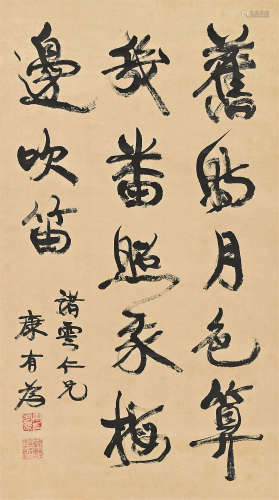 舊時月色算
幾番照我梅
邊吹笛
諾雲仁兄
康有為